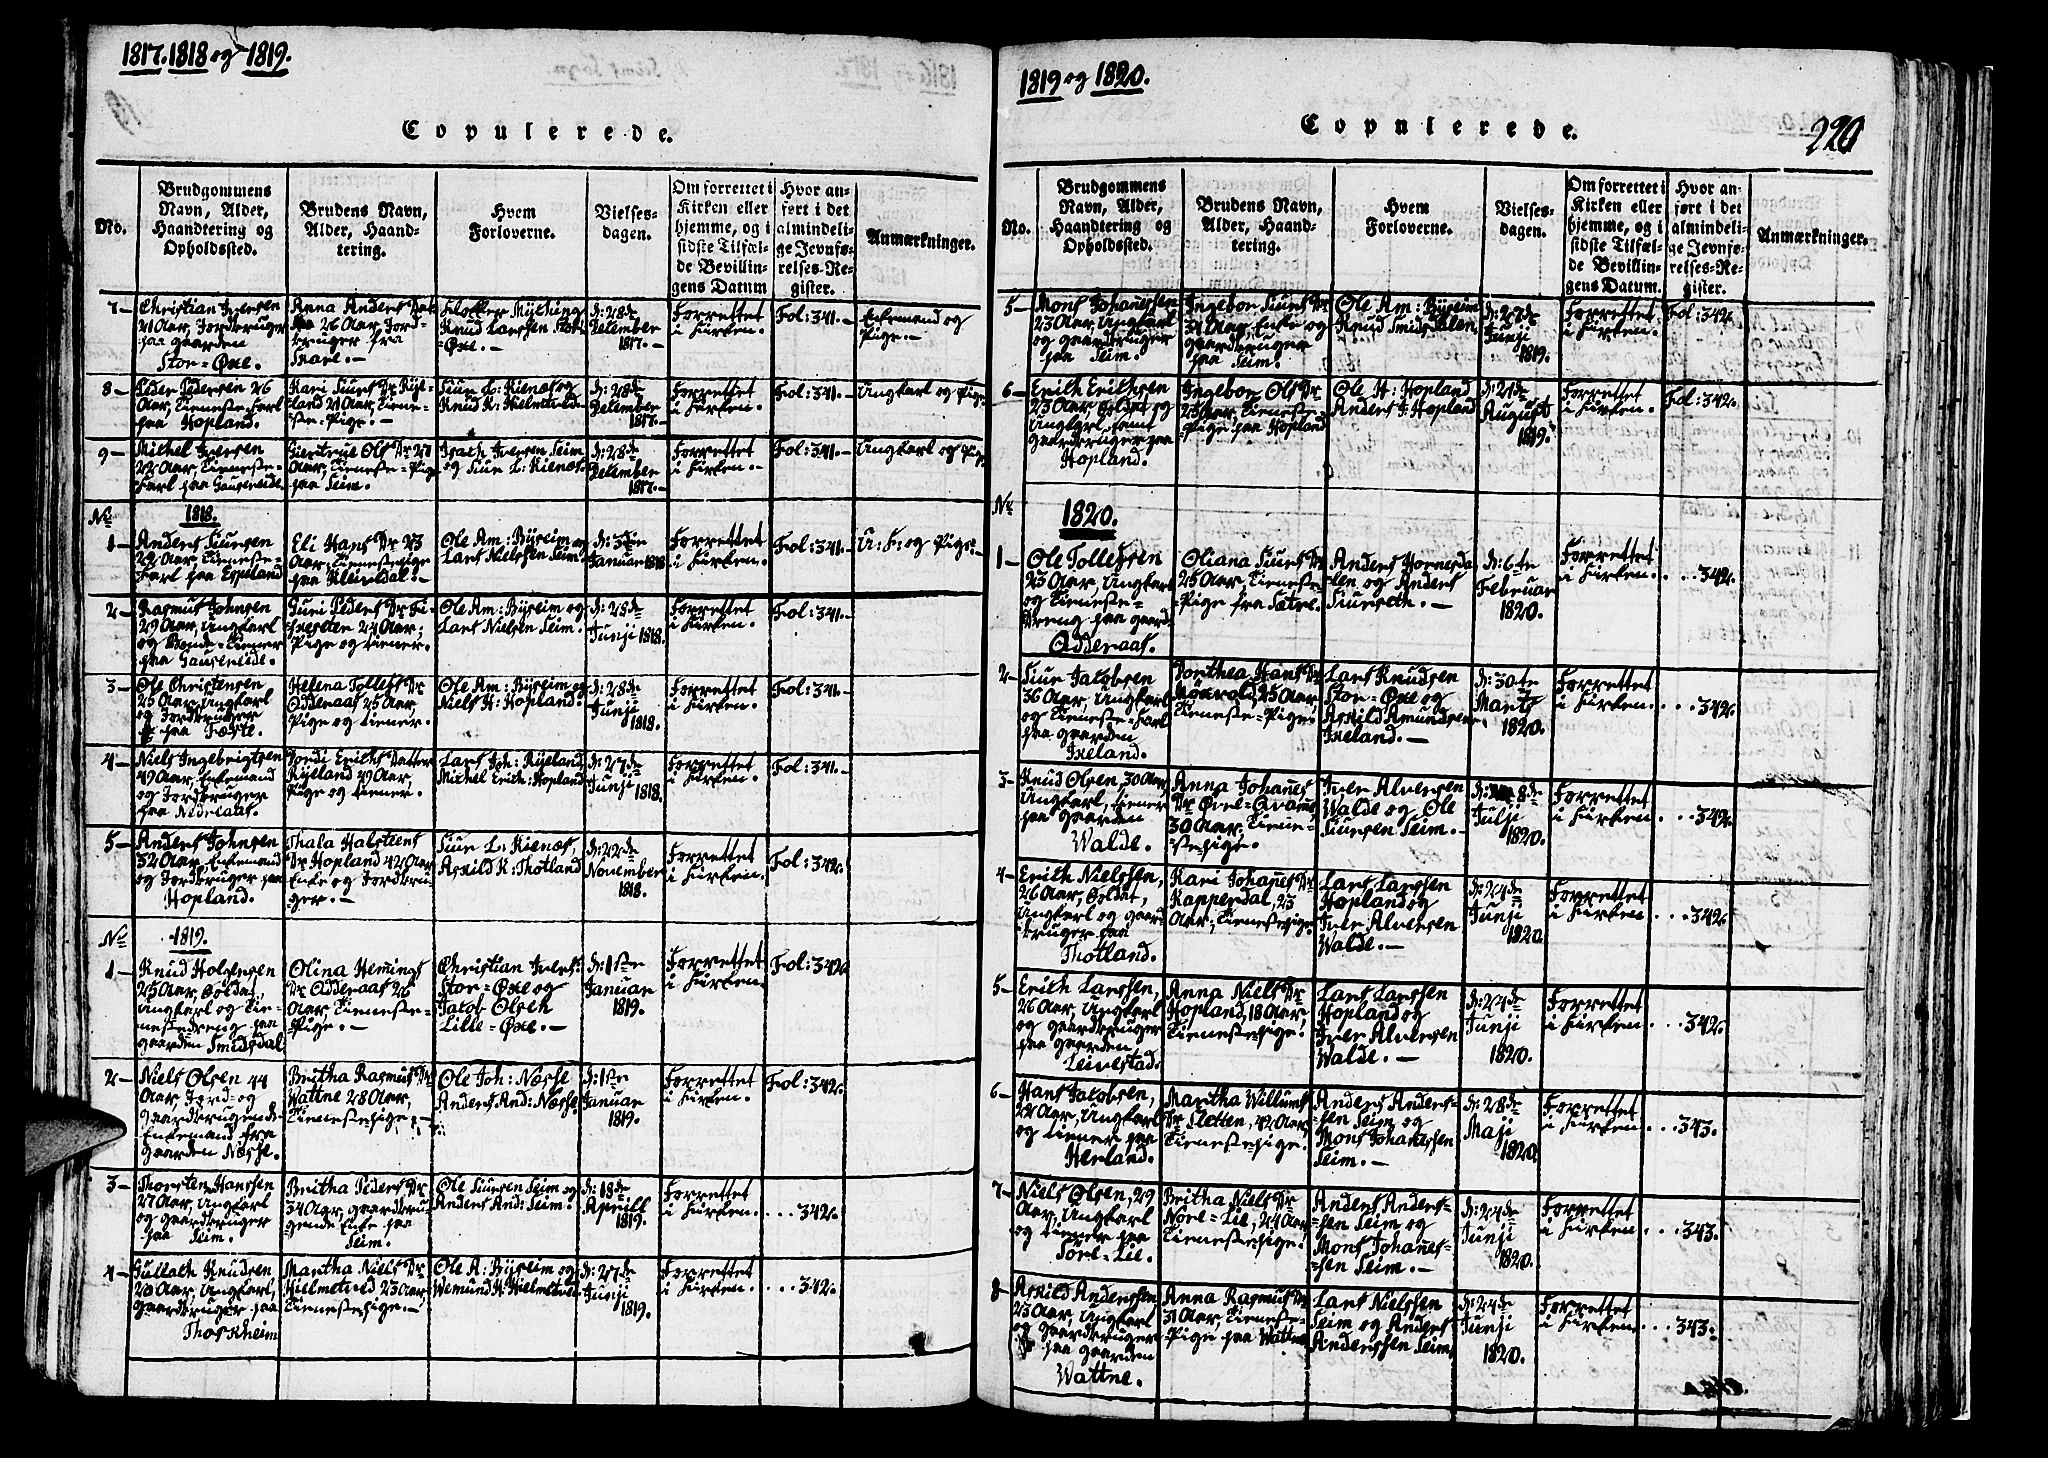 1817. 1818 og 1819.
Copulerede.
No.
Brudgommens
Navn, Alder,
Haandtering og
Opholdssted.
Brudens Navn,
Alder, Haand-
tering.
Hvem
Forloverne.
Vielses-
dagen.
Om forrettet i
Kirken eller
hjemme, og i
sidste Tilfæl-
de Bevillin-
gens Datum
Hvor an-
ført i det
almindeli-
ge Jevnfø-
relses-Re-
gister.
Anmærkninger.
7-
Christian Iversen
21 Aar, Jordbruger
paa gaarden
Stor-Øxe.
Anna Anders Dat
26 Aar, Jord-
bruger fra
Knud Larssen Stor
Øxe.-
d: 28de
December
1817.-
Forrettet
i Kirken.
Fol: 341.-
Enkemand og
Pige.-
8-
Peder Pedersen 26
Aar, Tieneste-Karl
paa Hopland.
Kari Siurs Dr Ryie-
land 21 Aar, Tiene-
ste-Pige.-
Siur L: Rienæs og
Knud K: Hielmtveid.-
d: 28de
December
1817.-
Forrettet
i Kirken.
Fol: 341.-
Ungkarl og Pige.
9-
Michel Iversen
22 Aar, Tieneste-
Karl paa Gausereide.
Giertrue Ols Dr 27
Aar, Tieneste-Pige
paa Seim.
Isach Iversen Seim
og Siur L: Rienæs.
d: 28de
December
1817.-
Forrettet
i Kirken.-
Fol: 341.-
Ungkarl og Pige.
No
1818.
1-
Anders Siursen
22 Aar, Tieneste-
Karl paa Espeland
Eli Hans Dr 23
Aar, Tienestepige
paa Kleivdal.-
Ole Am: Byseim og
Lars Nielssen Seim.
Januar 1818
Forrettet
i Kirken.
Fol: 341.-
U: K: og Pige.-
2-
Rasmus Johnsen
29 Aar, Ungkarl
og Bonde-Tiener
paa Gausereide.
Guri Peders Dr
24 Aar,
Pige og tiener.
Ole Am: Byseim og
Lars Nielsen Seim.
d: 28de
Junji 1818.
Forrettet
i Kirken.
Fol: 341.-
3-
Ole Christensen
25 Aar, Ungkarl
og Jordbruger
paa Færste.
Helena Tollefs Dr
Odderaas 25 Aar,
Pige og tiener.
Ole Am: Byseim og
Niels H: Hopland.
d: 28de
Junji
1818.
Forrettet
i Kirken.
Fol: 341.-
4-
Niels Ingebrigtsen
49 Aar, Enkemand
og Jordbruger
paa Nedreaas.
Jordi Erichs Datter
Ryeland 49 Aar,
Pige og tiener.
Lars Joh: Ryeland
Michel Erich: Hopland
d: 27de
Junji 1818.
Forrettet
i Kirken.
Fol: 341.-
5-
Anders Johnsen
32 Aar, Enkemand
og Jordbruger paa
Hopland.
Thala Halsteens
Dr Hopland 42 Aar
Enke og Jordbru-
ger.-
Siur L: Rienæs,
Askild K: Thotland
d: 22de
November
1818.
Forrettet
i Kirken.
Fol: 342.
No
1819.
1-
Knud Holgersen
25 Aar, Soldat,
Ungkarl og Tie-
nestedreng paa
gaarden Smidsdal
Olina Hemings
Dr Odderaas 26
Aar, Tieneste-
Pige.-
Christian Ivers:
Stor-Øxe og
Jacob Olsen
Lille-Øxe.-
d: 1ste
Januar
1819.
Forrettet
i Kirken.
Fol: 342
2-
Niels Olsen 44
Aar, Jord- og
gaardbrugende
Enkemand fra
Gaarden Næsse.
Britha Rasmus Dr
Wattne 28 Aar,
Tienestepige.-
Ole Joh: Næsse
Anders And: Næsse
d: 1ste
Januar
1819.
Forrettet
i Kirken.
Fol: 342.
3-
Thorsten Hanssen
27 Aar, Ungkarl
og gaardbruger
paa Seim.
Britha Peders Dr
34 Aar, gaardbru-
gende Enke paa
Seim.
Ole Siursen Seim og
Anders And: Seim.
d: 18de
Aprill
1819.
Forrettet
i Kirken.
... 342.
4-
Gullach Knudsen
20 Aar, Ungkarl,
gaardbruger paa
Thorsheim
Martha Niels Dr
Hielmtveid 23 Aar,
Tienestepige.-
Ole A: Byseim og
Wemund H: Hielmtveid
d: 27de
Junji
1819.
Forrettet
i Kirken.
... 342.
1819 og 1820.
220
Copulerede.
No.
Brudgommens
Navn, Alder,
Haandtering og
Opholdssted.
Brudens Navn,
Alder, Haand-
tering.
Hvem
Forloverne.
Vielses-
dagen.
Om forrettet i
Kirken eller
hjemme, og i
sidste Tilfæl-
de Bevillin-
gens Datum.
Hvor an-
ført i det
almindeli-
ge Jevnfø-
relses-Re-
gister.
Anmærkninger.
5-
Mons Johanesen
23 Aar, Ungkarl
og gaardbruger
paa Seim.
Ingebor Siurs Dr
31 Aar, Enke og
gaardbruger
paa Seim.
Ole Am: Byseim
Knud Smidsdalen
d: 27de
Junji
1819.
Forrettet
i Kirken.
Fol: 342.
6-
Erich Erichsen
23 Aar, Soldat og
Ungkarl, samt
gaardbruger paa
Hopland.
Ingebor Ols Dr
23 Aar, Tieneste-
Pige paa Hopland
Ole H: Hopland
Anders J: Hopland
August
1819.
Forrettet
i Kirken.
Fol: 342.
No
1820.
1-
Ole Tollefsen
23 Aar, Ungkarl
og Tieneste-
Dreng paa gaard
Odderaas.
Oliana Siurs Dr
25 Aar, Tieneste-
Pige fra Sætre.
Anders Hornesda-
len og Anders
Siurseth.-
d: 6te
Februar
1820.
Forrettet
i Kirken.
... 342.
2-
Siur Jacobsen
36 Aar, Ungkarl
og Tieneste-Karl
paa gaarden
Ixeland.
Dorthea Hans Dr
25 Aar,
Tieneste-Pige.
Lars Knudsen
Stor-Øxe og
Askild Amundsen
Ixeland.-
d: 30te
Marts
1820.
Forrettet
i Kirken.
... 342.
3-
Knud Olsen, 30 Aar,
Ungkarl, tiener
paa gaarden
Walde.
Anna Johanes
Dr
30 Aar, Tiene-
stepige.
Iver Alversen
Walde og Ole
Siursen Seim.-
Julji
1820.
Forrettet
i Kirken.
... 342.
4-
Erich Nielssen,
26 Aar, Soldat,
Ungkarl og gaard
bruger paa
Thotland.
Kari Johanes Dr
Kapperdal, 23
Aar, Tienestepige.
Lars Larssen
Hopland og
Iver Alversen
Walde.-
d: 24de
Junji
1820.
Forrettet
i Kirken
... 342.
5-
Erich Larssen,
26 Aar, Ungkarl
og gaardbruger
paa gaarden
Leirestad.
Anna Niels Dr
Hopland, 18 Aar,
Tienestepige.
Lars Larssen
Hopland og
Iver Alversen
Walde.-
d: 24de
Junji
1820.
Forrettet
i Kirken
... 342.
6-
Hans Jacobsen,
22 Aar, Ungkarl
og tiener paa
Herland.
Martha Willums
Dr Sletten, 42 Aar,
Tienestepige.
Anders Anders-
sen Seim og
Mons Johanessen
Seim.-
d: 28de
Maji
1820.
Forrettet
i Kirken.
... 343.
7-
Niels Olsen, 29
Aar, Ungkarl
og tiener paa
Søre-Lie.
Britha Niels Dr
Nore-Lie, 24 Aar
Tienestepige.
Anders Anders-
sen Seim og
Mons Johanes-
sen Seim.-
d: 24de
Junji
1820.
Forrettet
i Kirken.
... 343.
8-
Askild Anderssen
23 Aar, Ungkarl
og gaardbruger
paa gaarden
Wattne.
Anna Rasmus Dr
31 Aar, Tieneste-
Pige paa Wattne
Lars Nielssen
Seim og Anders
Anderssen Seim,
d: 24de
Junji
1820.
Forrettet
i Kirken.
... 343.